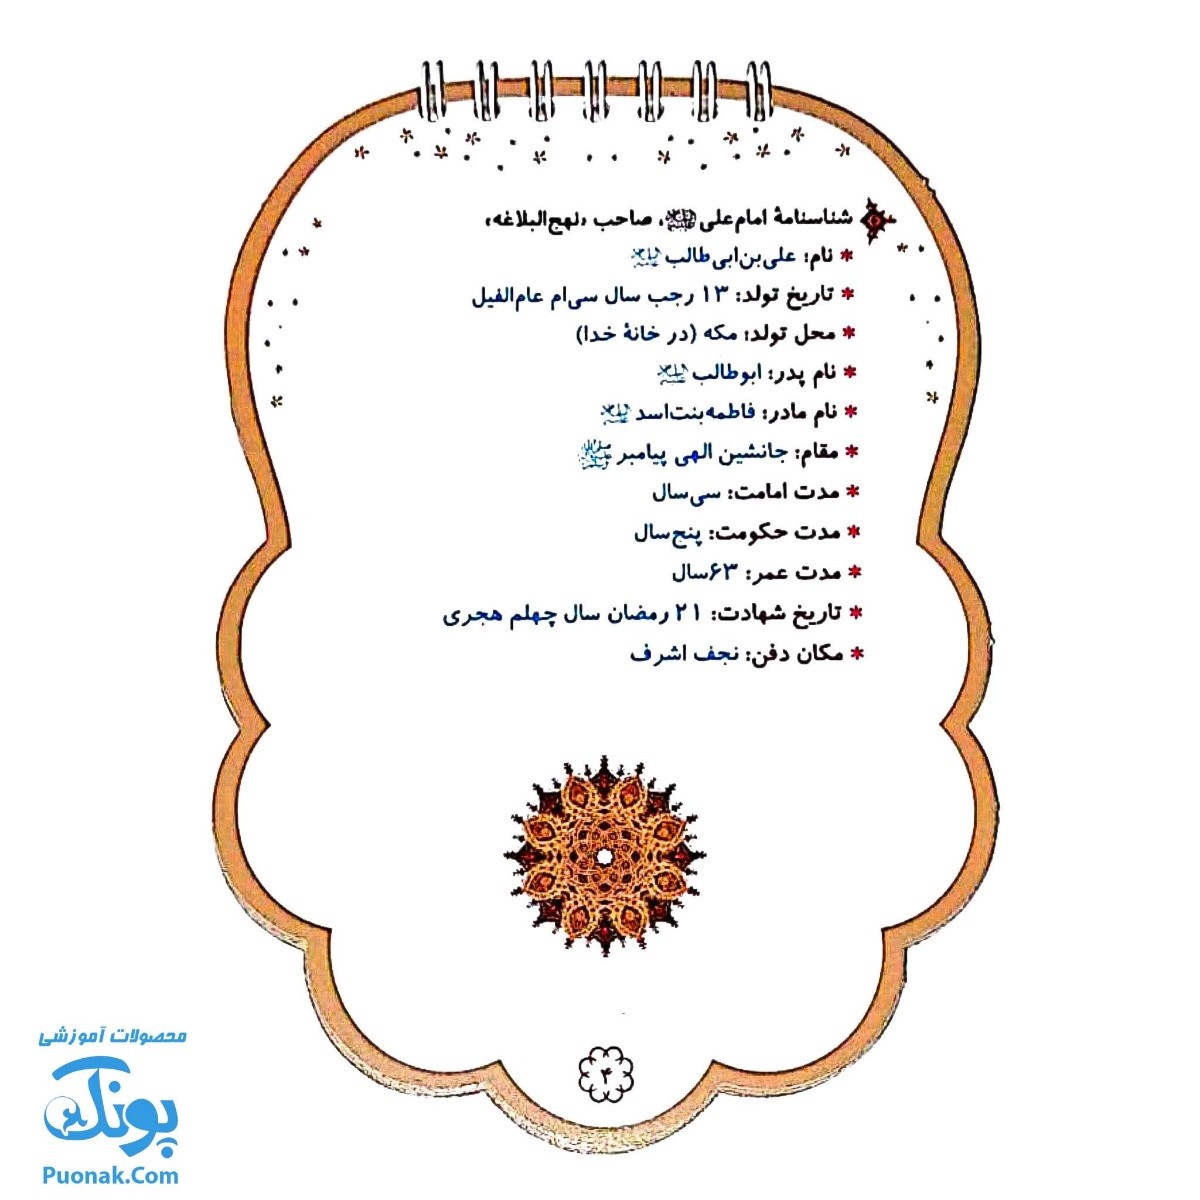 شناسنامهٔ امام‌علی علیه‌السلام، صاحب «نهج‌البلاغه»
* نام: علی‌بن‌ابی‌طالب علیه‌السلام
* تاریخ تولد: ۱۳ رجب سال سی‌ام عام‌الفیل
* محل تولد: مکه (در خانهٔ خدا)
* نام پدر: ابوطالب علیه‌السلام
* نام مادر: فاطمه‌بنت‌اسد
* مقام: جانشین الهی پیامبر ﷺ
* مدت امامت: سی‌سال
* مدت حکومت: پنج‌سال
* مدت عمر: ۶۳سال
* تاریخ شهادت: ۲۱ رمضان سال چهلم هجری
* مکان دفن: نجف اشرف
۴
محصولات آموزشی
پونک
Puonak.Com